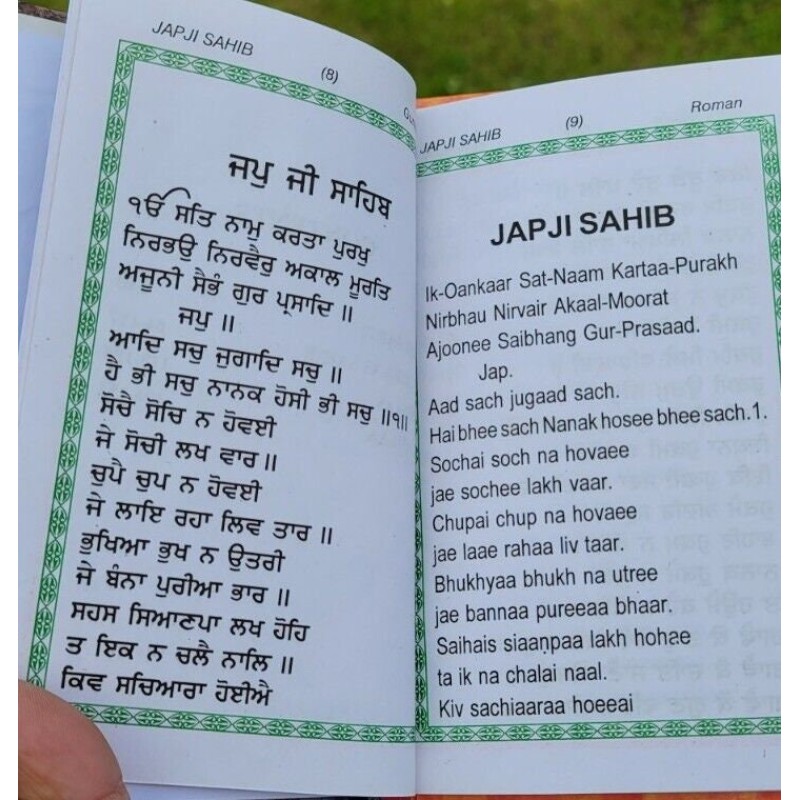 JAPJI SAHIB
(8)
ਜਪੁ ਜੀ ਸਾਹਿਬ
ੴ ਸਤਿ ਨਾਮੁ ਕਰਤਾ ਪੁਰਖੁ
ਨਿਰਭਉ ਨਿਰਵੈਰੁ ਅਕਾਲ ਮੂਰਤਿ
ਅਜੂਨੀ ਸੈਭੰ ਗੁਰ ਪ੍ਰਸਾਦਿ ॥
ਜਪੁ ॥
ਆਦਿ ਸਚੁ ਜੁਗਾਦਿ ਸਚੁ ॥
ਹੈ ਭੀ ਸਚੁ ਨਾਨਕ ਹੋਸੀ ਭੀ ਸਚੁ ॥੧॥
ਸੋਚੈ ਸੋਚਿ ਨ ਹੋਵਈ
ਜੇ ਸੋਚੀ ਲਖ ਵਾਰ ॥
ਚੁਪੈ ਚੁਪ ਨ ਹੋਵਈ
ਜੇ ਲਾਇ ਰਹਾ ਲਿਵ ਤਾਰ ॥
ਭੁਖਿਆ ਭੁਖ ਨ ਉਤਰੀ
ਜੇ ਬੰਨਾ ਪੁਰੀਆ ਭਾਰ ॥
ਸਹਸ ਸਿਆਣਪਾ ਲਖ ਹੋਹਿ
ਤ ਇਕ ਨ ਚਲੈ ਨਾਲਿ ॥
ਕਿਵ ਸਚਿਆਰਾ ਹੋਈਐ
JAPJI SAHIB
(9)
Roman
JAPJI SAHIB
Ik-Oankaar Sat-Naam Kartaa-Purakh
Nirbhau Nirvair Akaal-Moorat
Ajoonee Saibhang Gur-Prasaad.
Jap.
Aad sach jugaad sach.
Hai bhee sach Nanak hosee bhee sach.1.
Sochai soch na hovaee
jae sochee lakh vaar.
Chupai chup na hovaee
jae laae rahaa liv taar.
Bhukhyaa bhukh na utree
jae bannaa pureeaa bhaar.
Saihais siaaṇpaa lakh hohae
ta ik na chalai naal.
Kiv sachiaaraa hoeeai